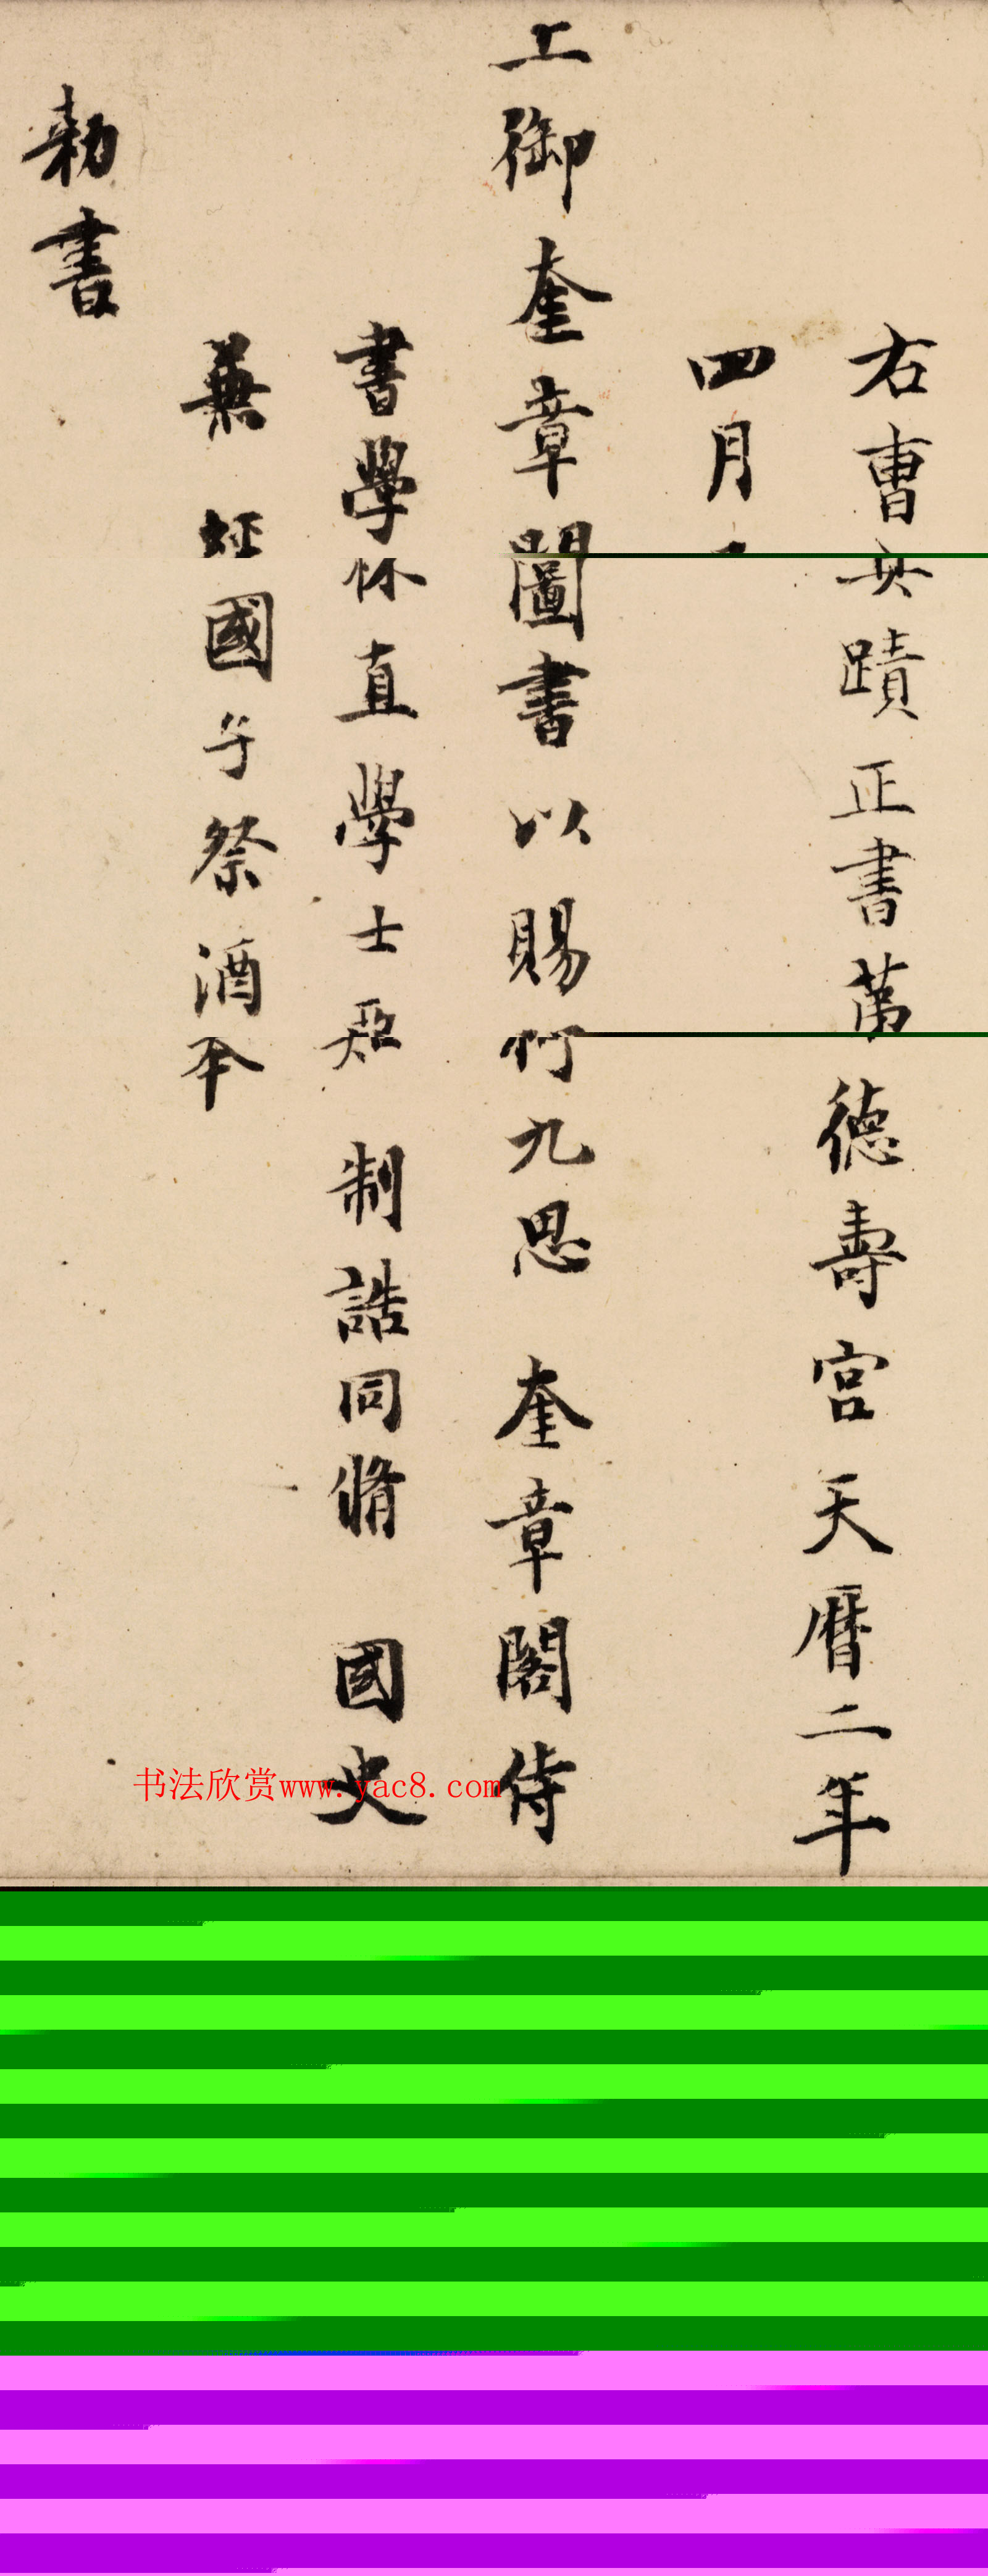 右曹娥真蹟正書第德壽宮天曆二年
四月
上御奎章閣圖書以賜柯九思 奎章閣侍
書學林直學士知 制誥同脩 國史
兼 經國子祭酒
勑書
书法欣赏www.yac8.com